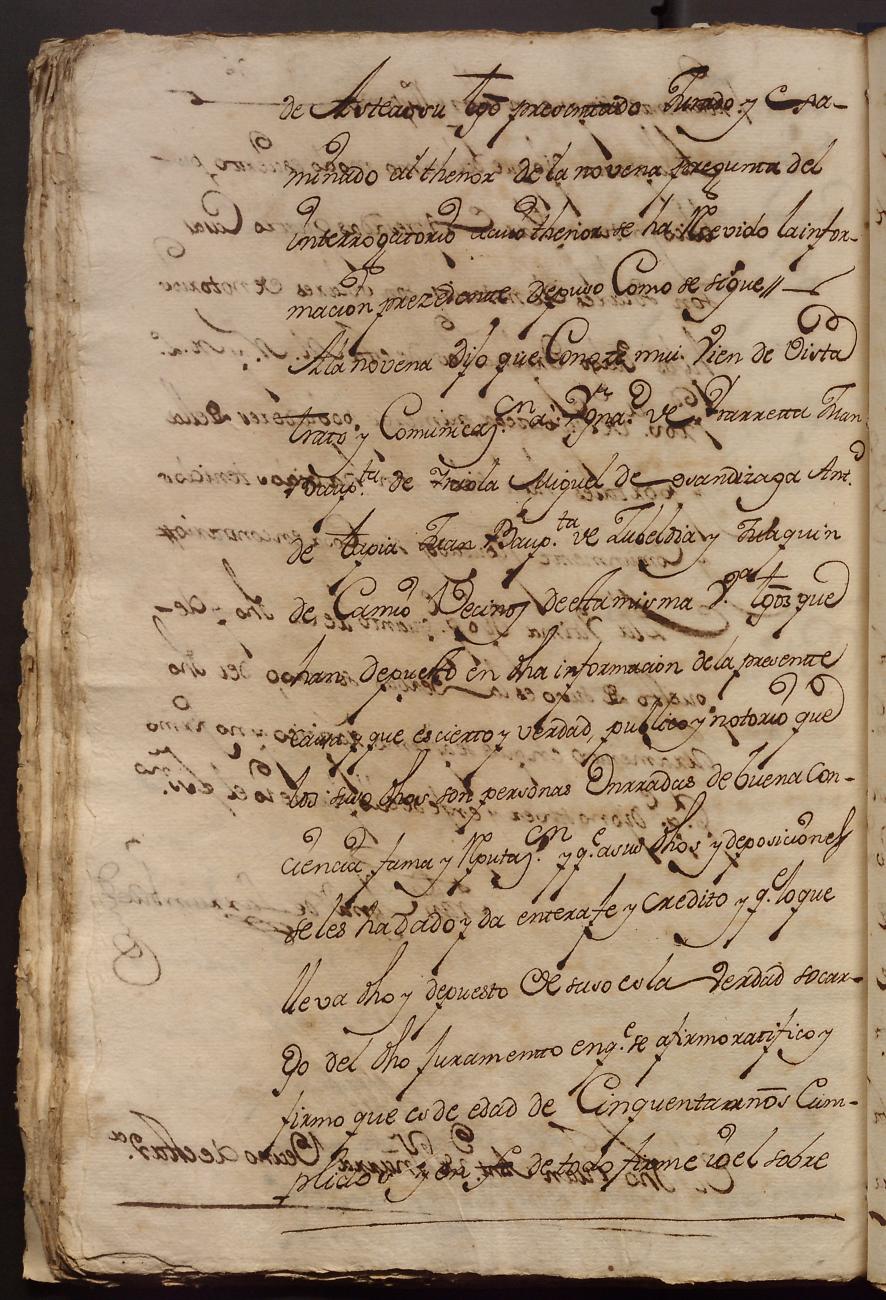 de Asteasu tgō presentado Jurado y Exsa-
minado al thenor de la novena pregunta del
interrogatorio a cuio thenor se ha Rzevido la infor-
macion prezedente depuso Como se sigue //
A la novena dijo que Conoze mui vien de Vista
trato y Comunicaz.on a Ygna.º de Yrarreta Juan
Baup.ta de Miguel de Ant.º
de tapia Juan Baup.ta de Zubeldia y Juachin
de Camio Vecinos de esta misma V.ª tgōs que
han depuesto en dha informacion de la presente
causa, y que es cierto y verdad, publico y notorio que
los suso dhos son personas Onrradas de buena Con-
ciencia fama y Rputaz.on y q.e a sus dhos y deposiciones
se les ha dado y da entera fe y credito y q.e lo que
lleva dho y depuesto de suso es la Verdad so car-
go del dho juramento en q.e se afirmo ratifico y
firmo que es de edad de Cinquenta annōs Cum-
plidos y en fee de todo firme io el sobre